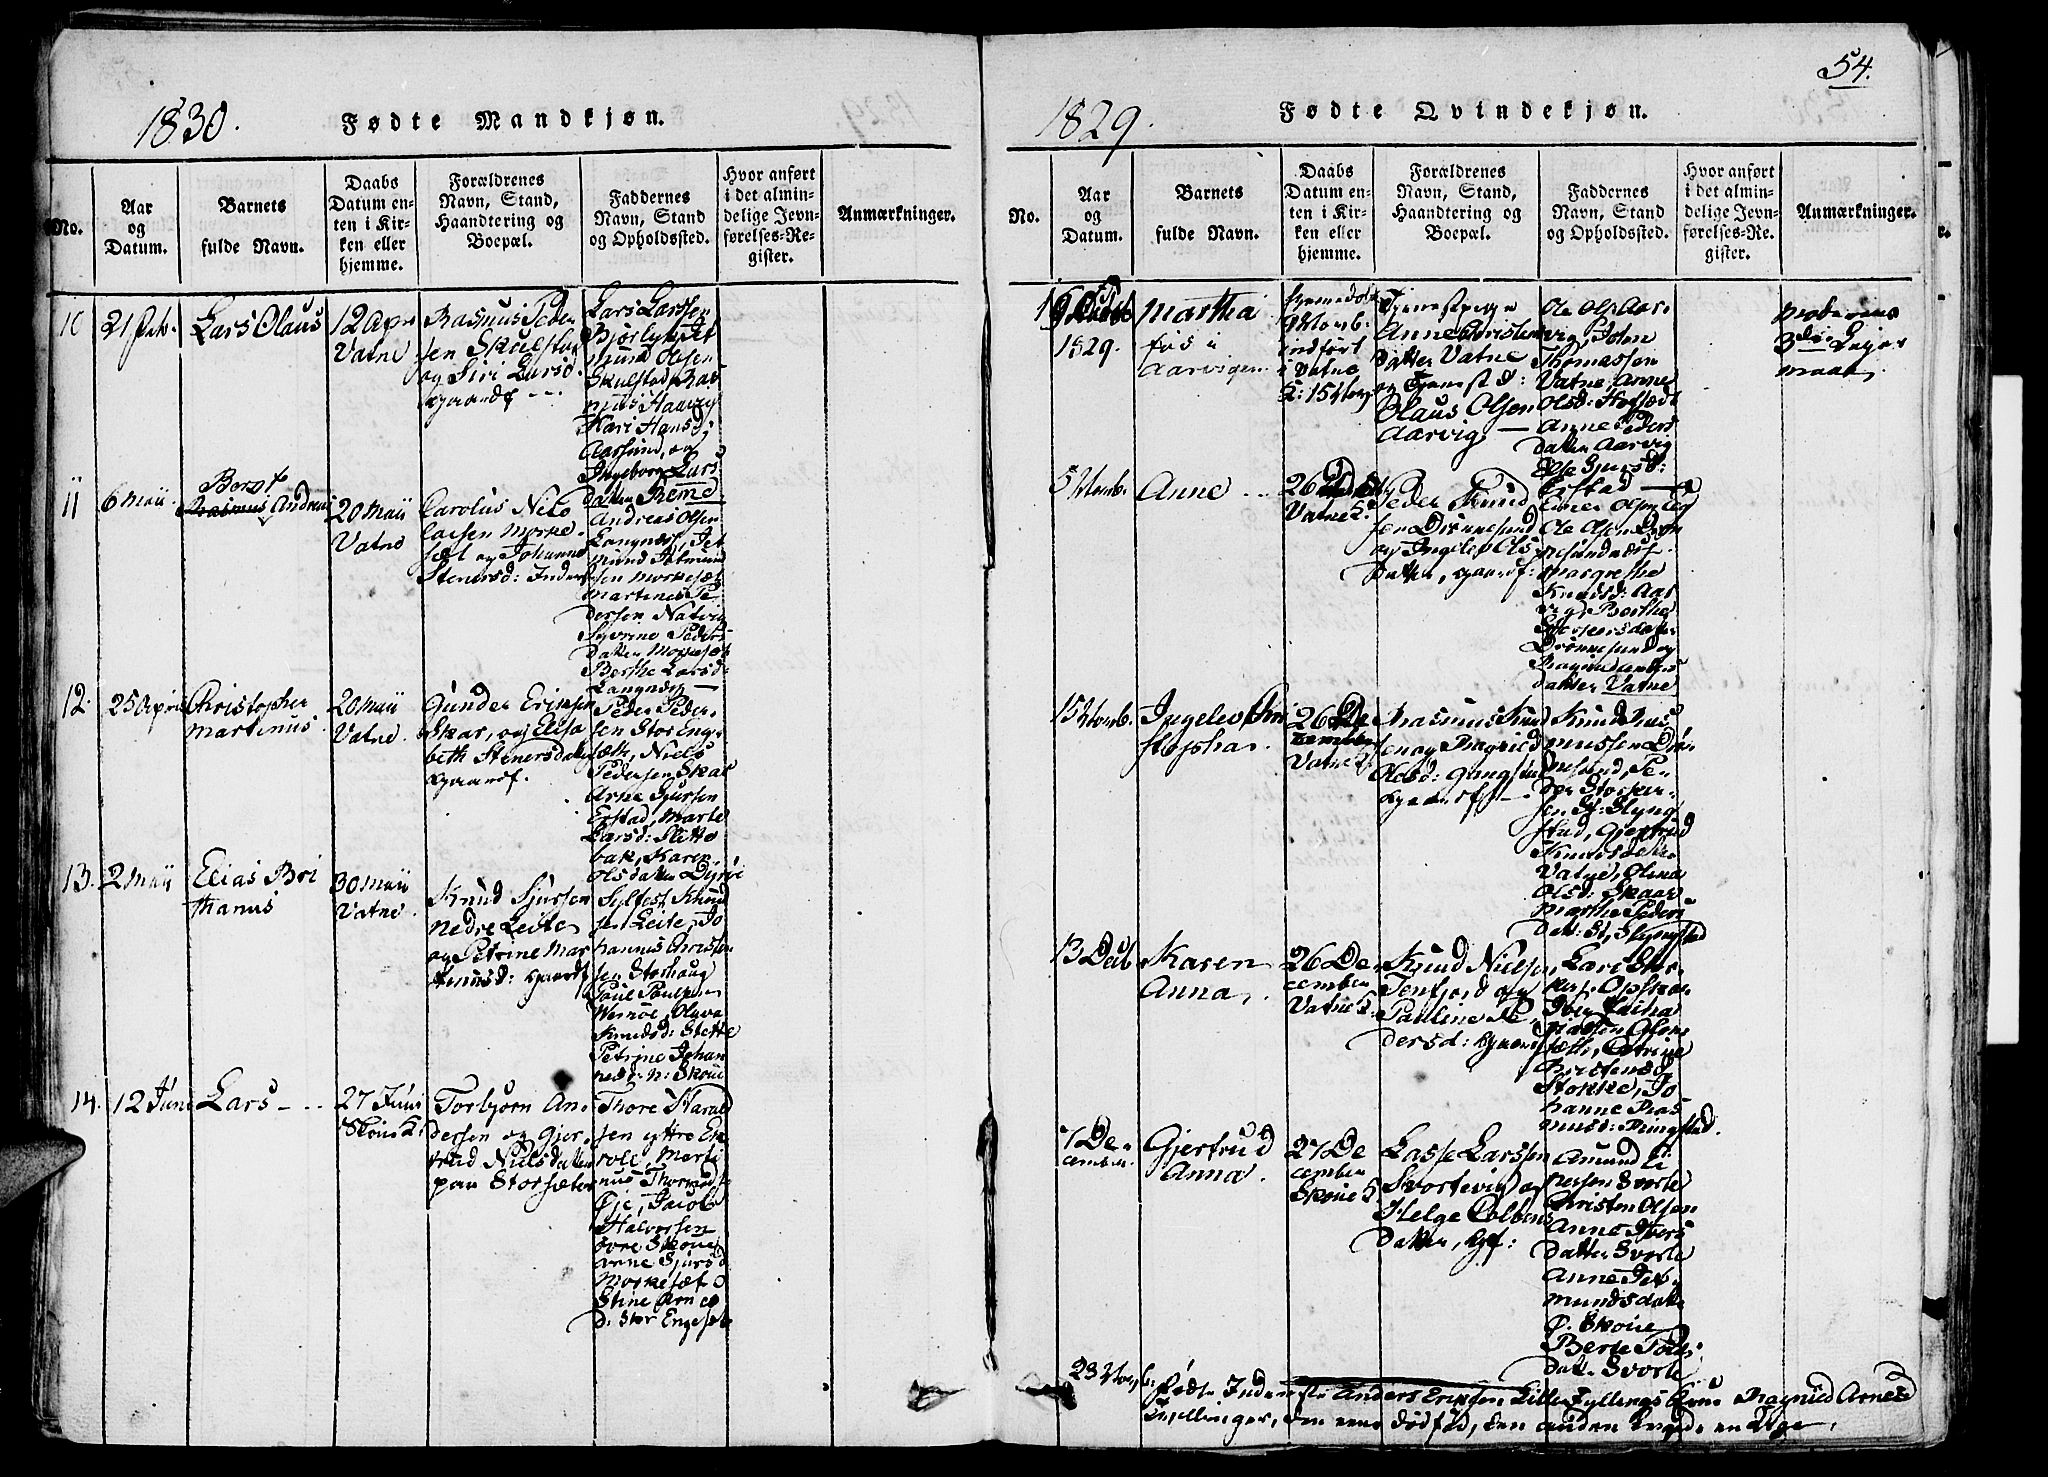 54.
1830. Fødte Mandkjøn.
No.
Aar
og
Datum.
Barnets
fulde Navn.
Daabs
Datum en-
ten i Kir-
ken eller
hjemme.
Forældrenes
Navn, Stand,
Haandtering og
Boepæl.
Faddernes
Navn, Stand
og Opholdssted.
Hvor anført
i det almin-
delige Jevn-
førelses-Re-
gister.
Anmærkninger.
10
21 Feb.
Lars Olaus
12 Apr
Vatne
Rasmus Peder
sen Skulstad
og Siri Larsd.
gaardf
Lars Larssen
Bjørlyk, Jet
mund Olsen
Skulstad, Ras
mus Haavig
Kari Hansd:
Aarsund, og
Ingeborg Lars
datter Reme
11
6 Maii
Berst
Rasmus Andreas
20 Maii
Vatne
Carolus Nico
laisen Morke-
sæt og Johanne
Stenersd: Inders
Andreas Olsen
Langnæs, Jet
mund Jetmund
sen Morkesæt
Martinus Pe
dersen Natvig
Syverine Peders
datter Morkesæt
Berthe Larsd:
Langnæs
12.
25 April
Christopher
Martinus.
20 Maii
Vatne.
Gunder Eriksen
Skar, og Elisa
beth Stenersdatter
gaardf.
Peder Peder-
sen Stor Enge
sæth, Niels
Pedersen Skar
Arne Sjursen
Erstad, Marte
Larsd: Slette
bak, Karen
Olsdatter Dyrøi
13.
2 Maii
Elias Bri
thanus
30 Maii
Vatne.
Knud Sjursen
Nedre Leite
og Petrine Mar
thinusd: gaardf
Sylfest Knud
sen Leite, Jo
hannes Christen
sen Storhaug
Poul Poulsen
Wemøe, Olava
Knudsd: Slette
Petrine Johan
nesd: N: Skoue
14.
12 Juni
Lars
27 Juni
Skoue K:
Torbjørn An-
dersen og Gjer-
trud Nielsdatter
paa Storsæter
Thore Harald
sen yttre En
roll, Marti
nus Thorvalds
Øje, Jacob
Halvorsen
øvre Skoue
Arne Sjursd
Morkesæt
Stine Arne
D. Stor Engesæt
1829. Fødte Qvindekjøn.
No.
Aar
og
Datum.
Barnets
fulde Navn.
Daabs
Datum en-
ten i Kir-
ken eller
hjemme.
Forældrenes
Navn, Stand,
Haandtering og
Boepæl.
Faddernes
Navn, Stand
og Opholdssted.
Hvor anført
i det almin-
delige Jevn-
førelses-Re-
gister.
Anmærkninger.
1829.
Martha
fød i
Aarvigen
hjemmedøbt
9 Novmb.
indført
i Vatne
K: 15 Novb
Tjenestpige
Anne Christens
datter Vatne
og Tjenestd:
Olaus Olsen
Aarvig
Ole Ols: Aar
vig, Peten
Thomassen
Vatne, Anne
Olsd: Hofsædt
Anne Peders
datter Aarvig
Else Sjursd:
Erstad
Moderens
3die Leier
maal.
5 Novmb.
Anne
26 Decb
Vatne K.
Peder Knud
sen Dronnesund
og Ingelev Ols
datter, gaardf:
Einer Olsen og
Ole Olsen Dron
nesund
Margrethe
Knudsd: Aar
vig, Berthe
Storkersdatter
Dronnesund og
Datter Vatne
15 Novmb.
Ingelev Chri
stopha
26 De
cember
Vatne K
Rasmus Knud
sen og Ragnild
Olsd: Gangstad
gaardf
Knud Ras
mussen Dron
nesund, Pe-
der Storker-
sen St: Slyng
stad, Gjertrud
Knudsdatter
Vatne, Olina
Olsd: Skaar
Marthe Peders
Dat: St, Slyngstad
13 Decb.
Karen
Anna
26 De
cember
Vatne K.
Knud Nielsen
Tenfjord og
Pauline Pe
dersd: gaardf
Lars Stor
Iver Zacha
riassen
Petrine
Christensd
Stokke, Jo
hanne Ras
musd: Ringstad.
7 De
cember.
Gjertrud
Anna.
27 De
cember
Skoue K.
Lasse Larssen
Svortevig og
Helge Colbens
datter, Ggf:
Amund Ei
nersen Svorte
Christen Olsen
Anne Ivers
datter Svorte
Anne Jet-
mundsdatter
Ø. Skoue
Berte Peders
Dat. Svorte
23 Novb:
fødte Anders Eriksen Lille Fyllings Kone Ragnild Arnesd
Tvillinger, den eene dødfød, den anden levede en Uge.